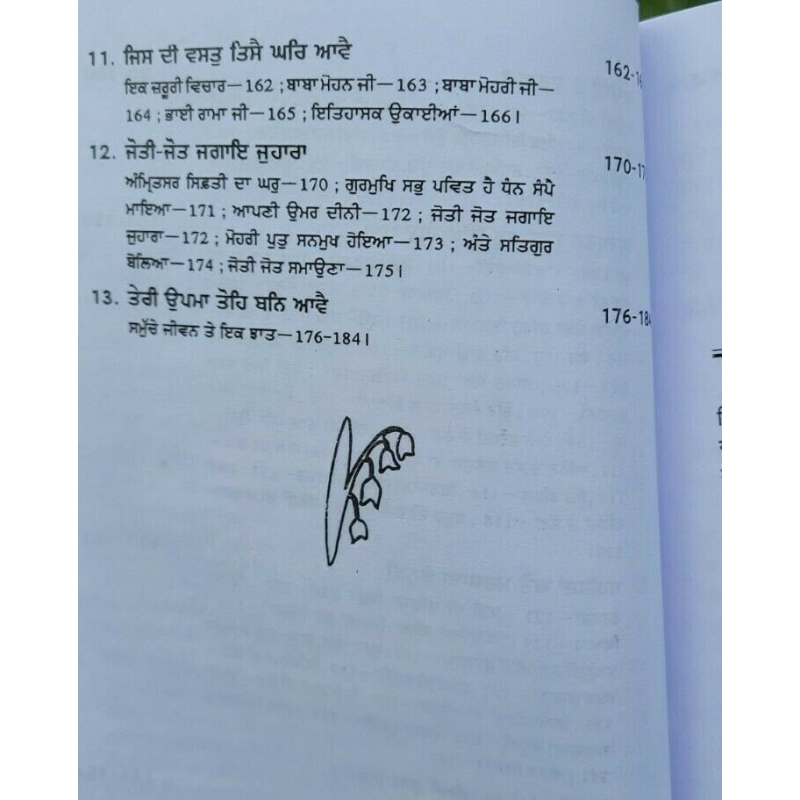 11. ਜਿਸ ਦੀ ਵਸਤੁ ਤਿਸੈ ਘਰਿ ਆਵੈ 162-16
ਇਕ ਜ਼ਰੂਰੀ ਵਿਚਾਰ—162 ; ਬਾਬਾ ਮੋਹਨ ਜੀ—163 ; ਬਾਬਾ ਮੋਹਰੀ ਜੀ—
164 ; ਭਾਈ ਰਾਮਾ ਜੀ—165 ; ਇਤਿਹਾਸਕ ਉਕਾਈਆਂ—166।
12. ਜੋਤੀ-ਜੋਤ ਜਗਾਇ ਜੁਹਾਰਾ 170-17
ਅੰਮ੍ਰਿਤਸਰ ਸਿਫ਼ਤੀ ਦਾ ਘਰੁ—170 ; ਗੁਰਮੁਖਿ ਸਭੁ ਪਵਿਤ ਹੈ ਧੰਨ ਸੰਪੈ
ਮਾਇਆ—171 ; ਆਪਣੀ ਉਮਰ ਦੀਨੀ—172 ; ਜੋਤੀ ਜੋਤ ਜਗਾਇ
ਜੁਹਾਰਾ—172 ; ਮੋਹਰੀ ਪੁਤੁ ਸਨਮੁਖ ਹੋਇਆ—173 ; ਅੰਤੇ ਸਤਿਗੁਰ
ਬੋਲਿਆ—174 ; ਜੋਤੀ ਜੋਤ ਸਮਾਉਣਾ—175।
13. ਤੇਰੀ ਉਪਮਾ ਤੋਹਿ ਬਨਿ ਆਵੈ 176-184
ਸਮੁੱਚੇ ਜੀਵਨ ਤੇ ਇਕ ਝਾਤ—176-184।